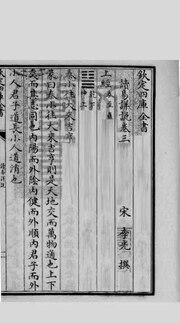 欽定四庫全書
讀易詳說卷三
宋 李光 撰
上經
乾下
坤上
泰小往大來吉亨
彖曰泰小往大來吉亨則是天地交而萬物通也上下
交而其志同也內陽而外陰內健而外順內君子而外
小人君子道長小人道消也
欽定四庫全書
讀易詳說